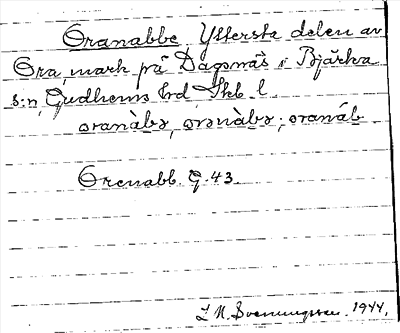 Oranabbe, Yttersta delen av
Ora, mark på Dagsnäs i Bjärka
s:n, Gudhems hrd Skb l.
oranàbə, orənàbə; oranáb
Orenabb. G. 43.
1944.